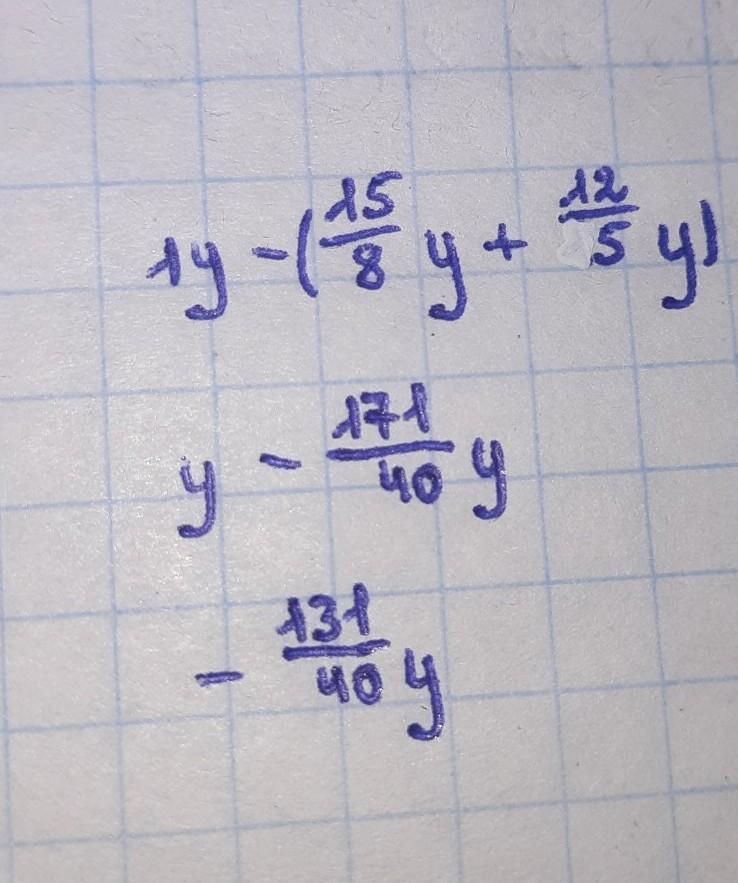 1y - (15/8 y + 12/5 y)
y - 171/40 y
- 131/40 y